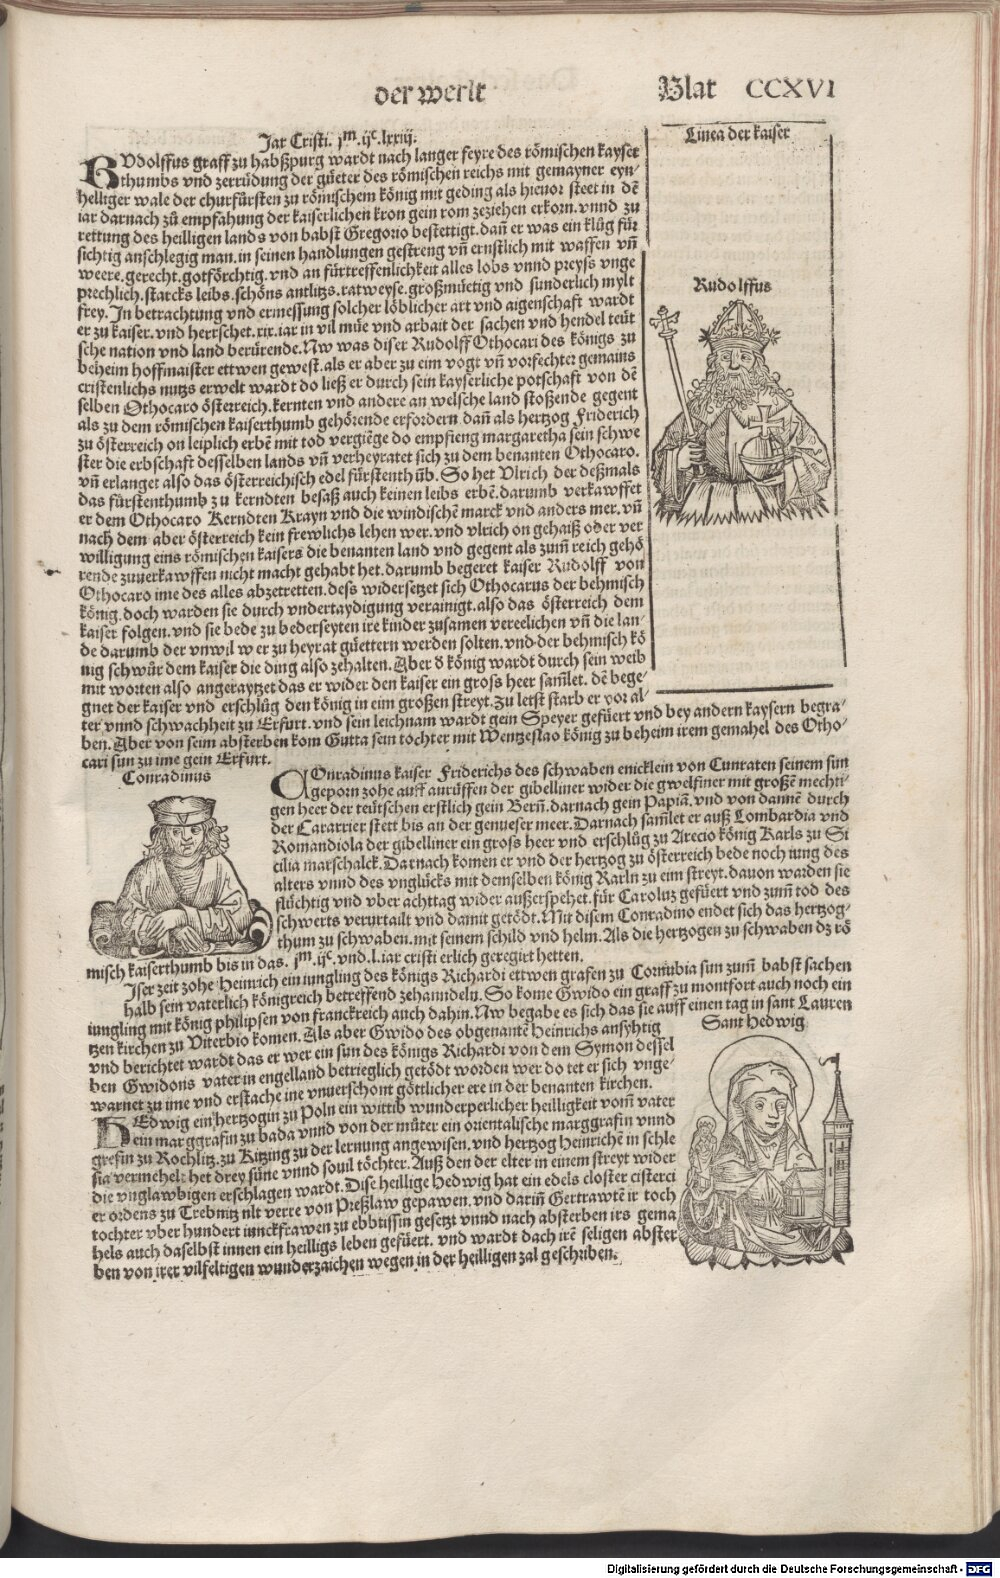 der werlt
Blat CCXVI
Linea der kaiser
Rudolffus
Jar Cristi. jm.ijc.lxxiij.
RVdolffus graff zu habßpurg wardt nach langer feyre des römischen kayser
thumbs vnd zerrüdung der güeter des römischen reichs mit gemayner eyn-
helliger wale der churfürsten zu römischem könig mit geding als hieuor steet in dē
iar darnach zů empfahung der kaiserlichen kron gein rom zeziehen erkorn. vnnd zu
rettung des heilligen lands von babst Gregorio bestettigt. dañ er was ein klůg für
sichtig anschlegig man. in seinen handlungen gestreng vñ ernstlich mit waffen vñ
weere. gerecht. gotförchtig. vnd an fürtreffenlichkeit alles lobs vnnd preyss vnge
prechlich. starcks leibs. schöns antlitzs. ratweyse. großmüetig vnd sunderlich mylt
frey. In betrachtung vnd ermessung solcher löblicher art vnd aigenschaft wardt
er zu kaiser. vnd herrschet. xix. iar in vil müe vnd arbait der sachen vnd hendel teüt
sche nation vnd land berürende. Nw was diser Rudolff Othocari des königs zu
beheim hoffmaister ettwen gewest. als er aber zu eim vogt vñ vorfechter gemains
cristenlichs nutzs erwelt wardt do ließ er durch sein kayserliche potschaft von dē
selben Othocaro österreich. kernten vnd andere an welsche land stoßende gegent
als zu dem römischen kaiserthumb gehörende erfordern. dañ als hertzog Friderich
zu österreich on leiplich erbē mit tod vergiēge do empfieng margaretha sein schwe
ster die erbschaft desselben lands vñ verheyratet sich zu dem benanten Othocaro.
vñ erlanget also das österreichisch edel fürstenthūb. So het Vlrich der deßmals
das fürstenthumb zu kerndten besaß auch keinen leibs erbē. darumb verkawffet
er dem Othocaro Kerndten Krayn vnd die windischē marck vnd anders mer. vñ
nach dem aber österreich kein frewlichs lehen wer. vnd vlrich on gehaiß oder ver
willigung eins römischen kaisers die benanten land vnd gegent als zum̄ reich gehö
rende zuuerkawffen nicht macht gehabt het. darumb begeret kaiser Rudolff von
Othocaro ime des alles abzetretten. dess widersetzet sich Othocarus der behmisch
könig. doch warden sie durch vndertaydigung verainigt. also das österreich dem
kaiser folgen. vnd sie bede zu bederseyten ire kinder zusamen vereelichen vñ die lan-
de darumb der vnwil w er zu heyrat güettern werden solten. vnd der behmisch kö
nig schwůr dem kaiser die ding also zehalten. Aber d̕ könig wardt durch sein weib
mit worten also angerayt­zet das er wider den kaiser ein gross heer sam̄let. dē bege-
gnet der kaiser vnd erschlůg den könig in eim großen streyt. Zu letst starb er vor al-
ter vnnd schwachheit zu Erfurt. vnd sein leichnam wardt gein Speyer gefüert vnd bey andern kaysern begra-
ben. Aber von seim absterben kom Gutta sein tochter mit Wentzeslao könig zu beheim irem gemahel des Otho-
cari sun zu ime gein Erfurt.
Conradinus
COnradinus kaiser Friderichs des schwaben enicklein von Cunraten seinem sun
geporn zohe auff anrüffen der gibelliner wider die gwelfiner mit großē mechti-
gen heer der teütschen erstlich gein Bern̄. darnach gein Papiā. vnd von dannē durch
der Cararrier stett bis an der genueser meer. Darnach sam̄let er auß Lombardia vnd
Romandiola der gibelliner ein gross heer vnd erschlůg zu Arecio könig Karls zu Si
cilia marschalck. Darnach komen er vnd der hertzog zu österreich bede noch iung des
alters vnnd des vnglücks mit demselben könig Karln zu eim streyt. dauon warden sie
flüchtig vnd vber achttag wider außerspehet. für Caroluz gefüert vnd zum̄ tod des
schwerts verurtailt vnd damit getödt. Mit disem Conradino endet sich das hertzog-
thum zu schwaben. mit seinem schild vnd helm. Als die hertzogen zu schwaben dz rö
misch kaiserthumb bis in das. jm.ijc.vnd.l.iar cristi erlich geregirt hetten.
Iser zeit zohe Heinrich ein iungling des königs Richardi ettwen grafen zu Cornubia sun zum̄ babst sachen
halb sein vaterlich königreich betreffend zehanndeln. So kome Gwido ein graff zu montfort auch noch ein
iungling mit könig philipsen von franckreich auch dahin. Nw begabe es sich das sie auff einen tag in sant Lauren
tzen kirchen zu Viterbio komen. Als aber Gwido des obgenantē Heinrichs ansyhtig
vnd berichtet wardt das er wer ein sun des königs Richardi von dem Symon dessel
ben Gwidons vater in engelland betrieglich getödt worden wer do tet er sich vnge-
warnet zu ime vnd erstache ine vnuerschont göttlicher ere in der benanten kirchen.
Sant Hedwig
HEdwig ein hertzogin zu Poln ein wittib wunderperlicher heilligkeit vom̄ vater
ein marggrafin zu bada vnnd von der můter ein orientalische marggrafin vnnd
grefin zu Rochlitz. zu Kitzing zu der lernung angewisen. vnd hertzog Heinrichē in schle
sia vermehelt het drey süne vnnd souil töchter. Auß den der elter in einem streyt wider
die vnglawbigen erschlagen wardt. Dise heillige Hedwig hat ein edels closter cisterci
er ordens zu Trebnitz nit verre von Preßlaw gepawen. vnd darin̄ Gertrawtē ir toch
tochter vber hundert iunckfrawen zu ebbtissin gesetzt vnnd nach absterben irs gema
hels auch daselbst innen ein heilligs leben gefüert. vnd wardt dach irē seligen abster
ben von irer vilfeltigen wunderzaichen wegen in der heilligen zal geschriben.
Digitalisierung gefördert durch die Deutsche Forschungsgemeinschaft - DFG